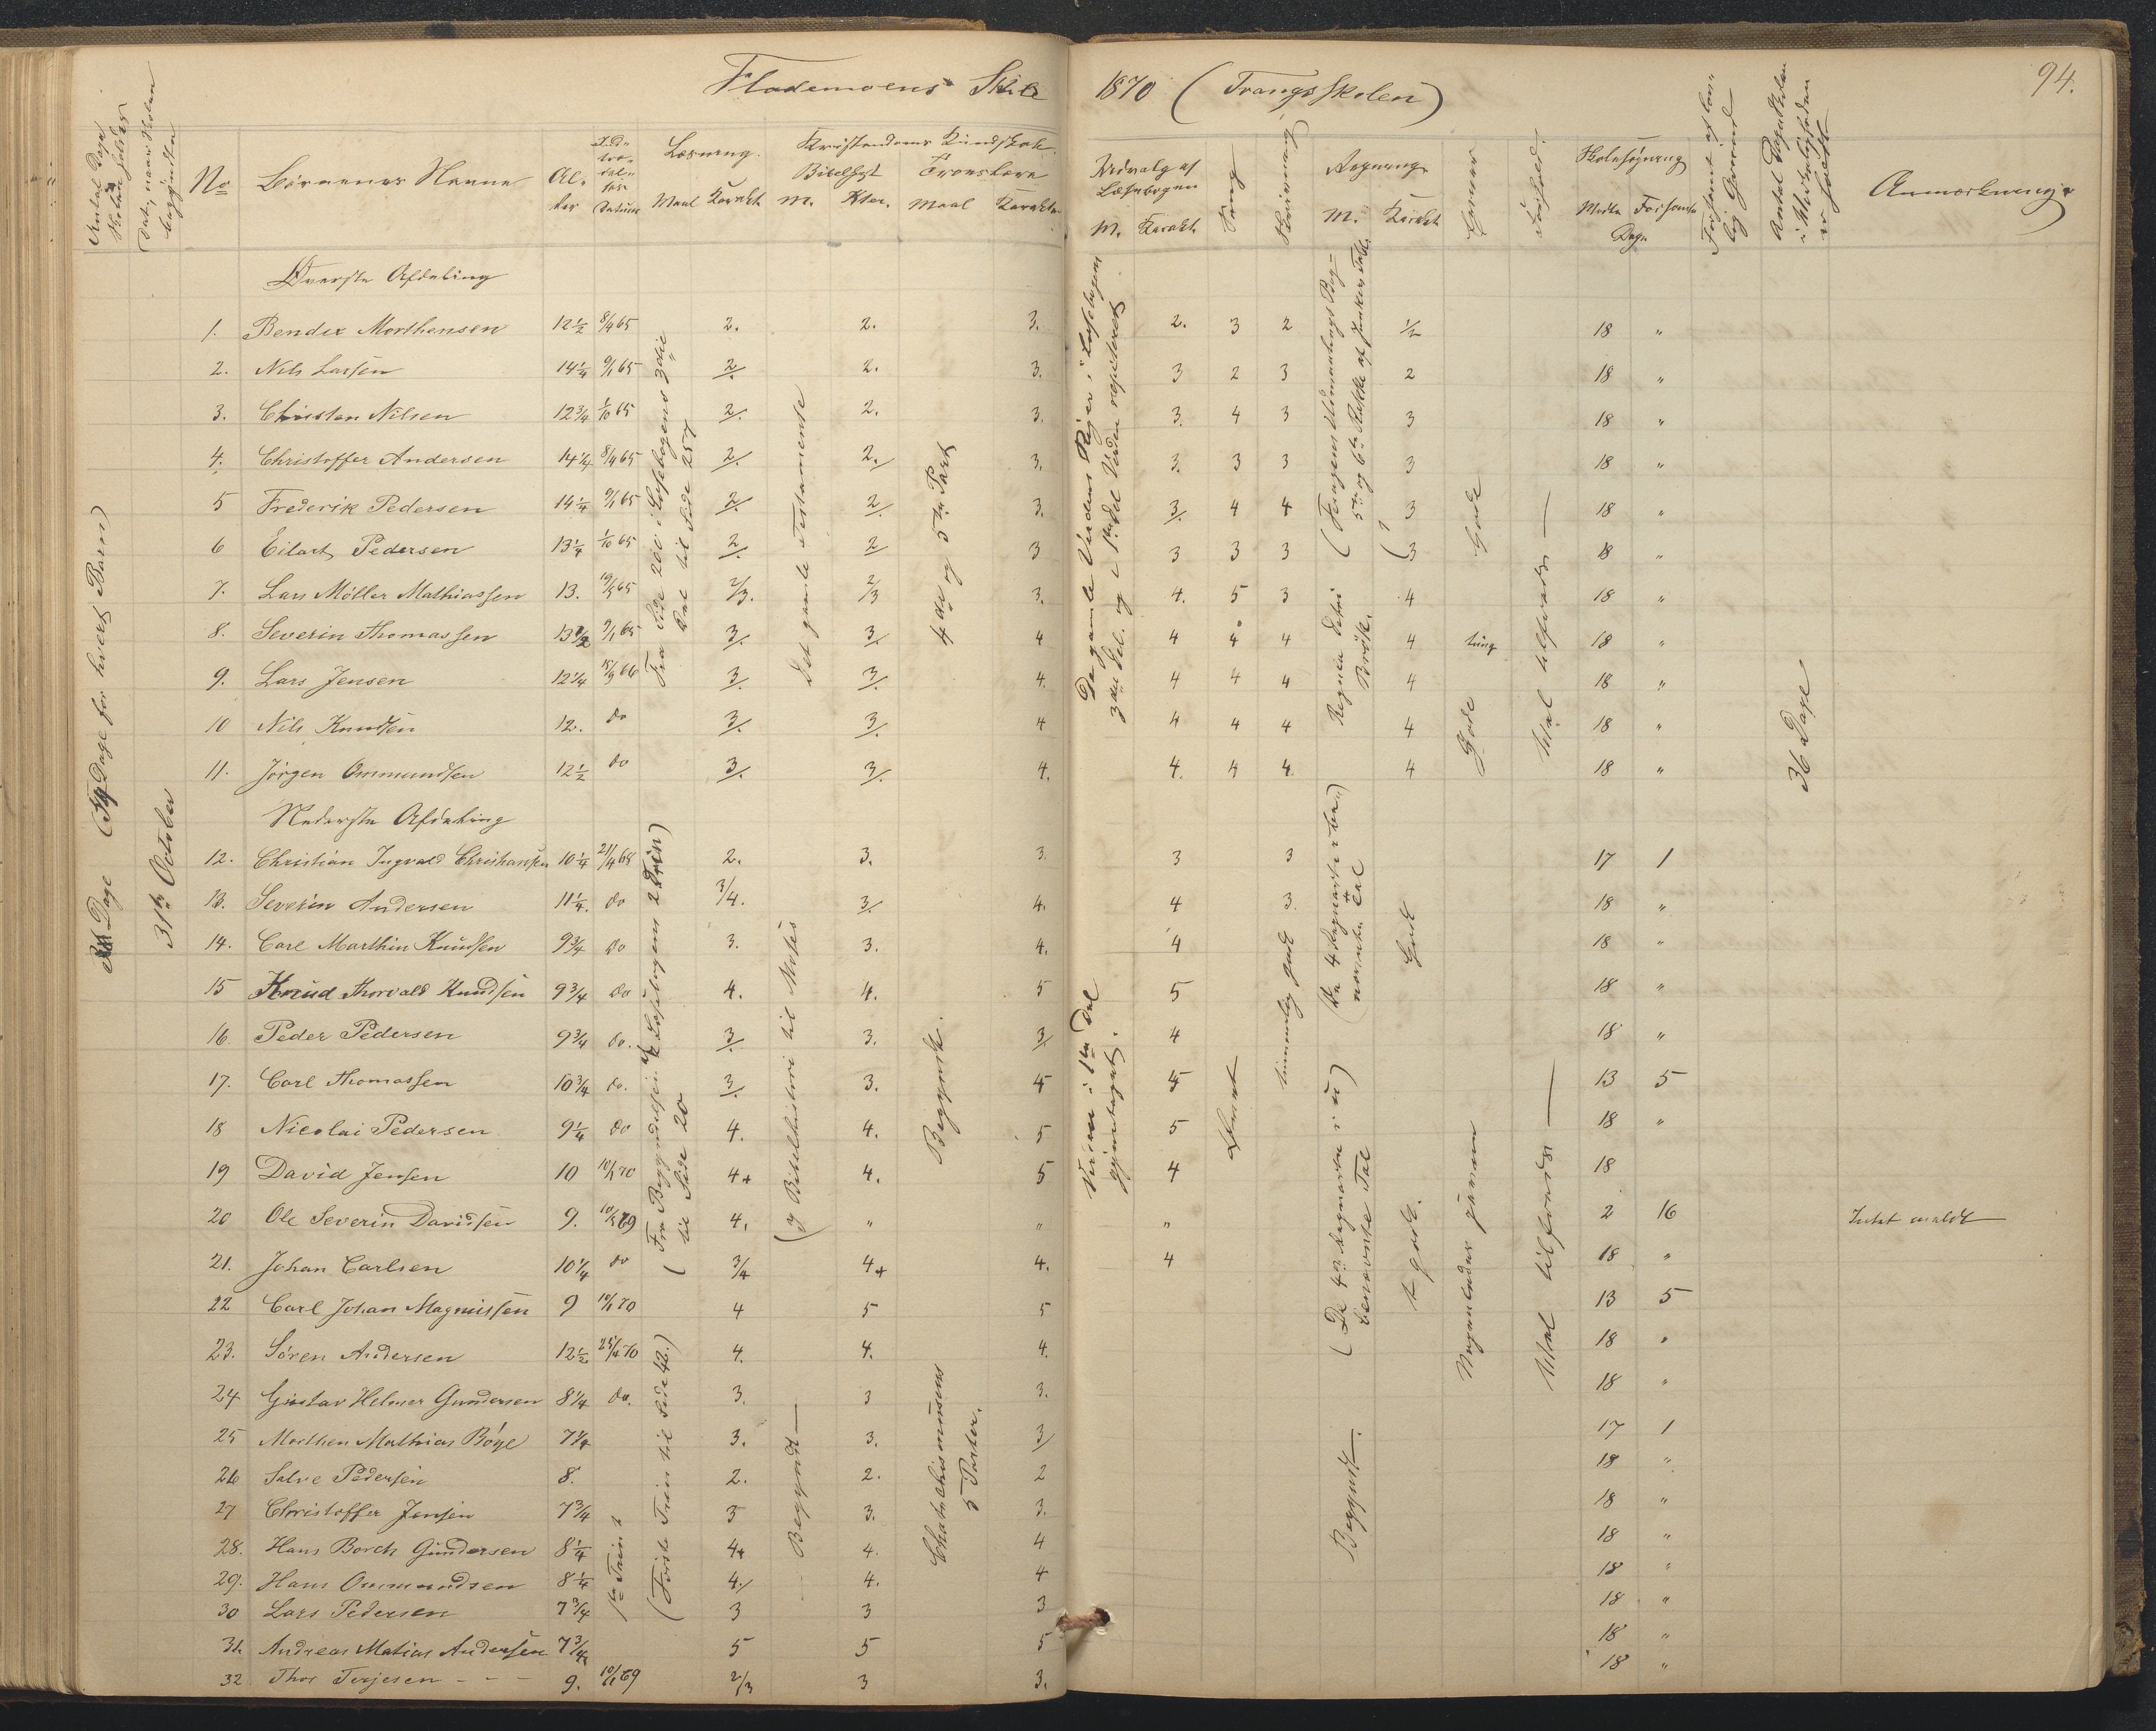 Flademoens Skole 1870 (Trangsskolen)
94.
Antal Dage Skolen holdes
Datum, naar Skolen begyndte
No
Börnenes Navne
Alder
Indtrædelses Datum
Læsning.
Maal Karakt
Kristendoms Kundskab.
Bibelhist
M. Kter.
Troeslære
Maal Karakter
Udvalg af Læsebogen
M. Karakt.
Sang
Skrivning
Regning
M. Karakt
Evner
Forhold.
Skolesøgning
Mødte Forsømte
Dage
Forsømt af lovlig Grund
Antal Dage Skolen i Virkeligheden er holdt
Anmærkninger
Øverste Afdeling
1. Bendix Morthensen 12½ 8/4 65 2. 2. 3. 2. 3 2 ½ 18 "
2. Nils Larsen 14¼ 9/1 65 2/. 2. 3. 3 2 3 2 18 "
3. Christen Nilsen 12¾ 1/10 65 2/. 2. 3. 3. 4 3 3 18 "
4. Christoffer Andersen 14¼ 8/4 65 2/. 2./ 3. 3. 3 3 3 18 "
5 Frederik Pedersen 14¼ 9/1 65 2/. 2/. 3. 3/. 4 4 3 18 "
6 Eilart Pedersen 13¼ 1/10 65 2/. 2/. 3 3 3 3 3 18 "
7. Lars Möller Mathiassen 13. 19/5 65 2/3. 2/3 3. 4. 5 3 4 18 "
8. Severin Thomassen 13½ 9/1 65 3/. 3/. 4 4 4 4 4 tung 18 "
9. Lars Jensen 12¼ 15/3 66 3/. 3/. 4. 4 4 4 4 18 "
10 Nils Knudsen 12. do 3/. 3/. 4 4 4 4 4 18 "
11. Jörgen Ommundsen 12½ do 3/. 3/. 4. 4. 4 4. 4 18 "
Nederste Afdeling
12. Christian Ingvald Christiansen 10¼ 21/4 68 2. 3. 3. 3 3 17 1
13. Severin Andersen 11¼. do 3/4. 3/. 4. 4 3. 18 "
14. Carl Marthin Knudsen 9¾ do 3. 3. 4. 4 18 "
15 Knud Thorvald Knudsen 9¾ do 4. 4. 5 5 18 "
16. Peder Pedersen 9¾ do. 3/. 3. 3/ 4 18 "
17. Carl Thomassen 10¾ do. 3/. 3. 4 4 13 5
18 Nicolai Pedersen 9¼ do 4. 4. 5 5 18 "
19 David Jensen 10 10/1 70 4+ 4. 5 4 18
20 Ole Severin Davidsen 9. 10/5 69 4. " " " 2 16 Intet meldt
21. Johan Carlsen 10¼ do 3/4 4+ 4. 4 18 "
22 Carl Johan Magnussen 9 10/1 70 4 5 5 13 5
23. Sören Andersen 12½ 25/4 70 4. 4. 4. 18 "
24 Gustav Helmer Gundersen 8¼ do. 3. 3 3. 18 "
25 Morthen Mathias Böge 7¼ 3. 3. 3/ 17 1
26 Salve Pedersen 8. 2. 2. 2 18 "
27 Christoffer Jensen 7¾ 3 3. 3. 18 "
28. Hans Borch Gundersen 8¼ 4+ 4. 4 18 "
29. Hans Ommundsen 8¼ 4./ 4. 4 18 "
30 Lars Pedersen 7¾ 3 3 3 18 "
31. Andreas Matias Andersen 7¾ 5 5 5 18 "
32 Thor Terjesen - - - 9. 10/11 69 2/3 3 3. 18 "
Dage for hvert Barn)
31te October
Fra Side 201 i Læsebogens 3die Del til Side 257
Det gamle Testamente
4de og 5te Part
De gamle Verdens Riger i Læsebogens 3die Del. og 1ste Del Verden repeteret
Regnea Detri Brök.
Gode
tilfreds
Gode
36 Dage
(Fra Begyndelsen af Læsebogens 2 Trin) til Side 20
(Bibelhistorie til Moses
Begyndt.
Verden i 1ste Del gjennemgaaet.
Lært
temmelig godt
(De 4 Regnearter i benævnte Tal
Godt
(De 4 Regnearter i u) benævnte Tal
+ godt.
Nogenlunde jævnen
tilfreds
(Förste Trin til Side 42.)
1ste Trin +
Begyndt
Chatechismusens 5 Parter.
Begyndt.